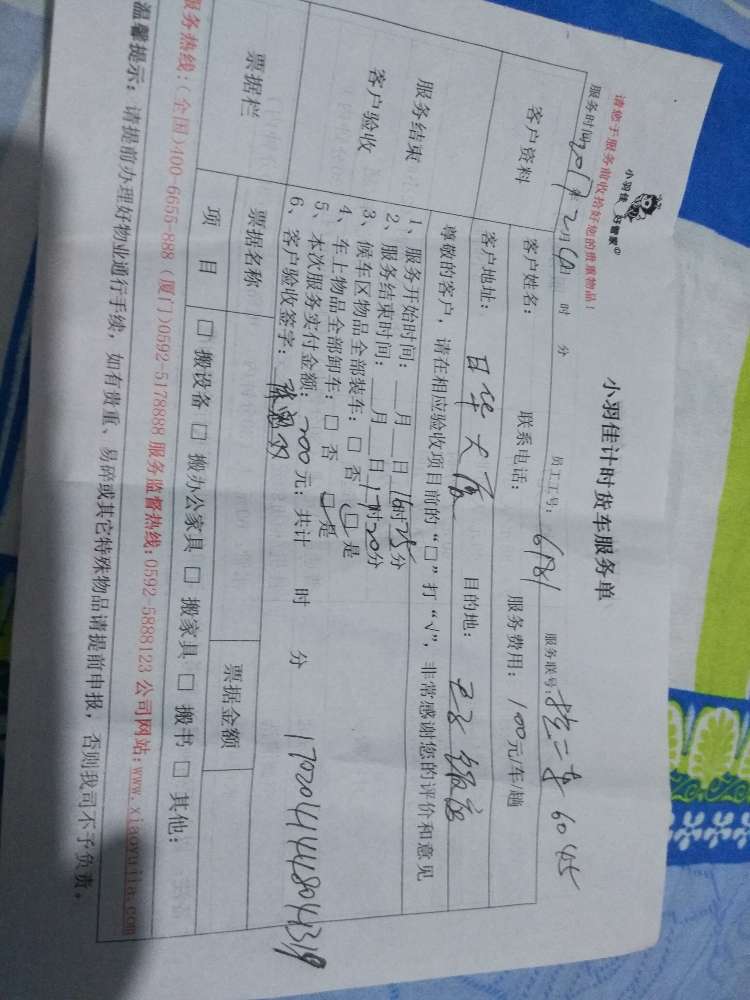 小羽佳 好管家
请您于服务前收拾好您的贵重物品！
小羽佳计时货车服务单
服务时间2017年2月 日 时 分 员工工号：6181 服务联号： 6045
客户资料
客户姓名： 联系电话： 服务费用：100元/车/趟
客户地址：日华大厦 目的地：
尊敬的客户，请在相应验收项目前的“□”打“√”，非常感谢您的评价和意见
服务结束
客户验收
1、服务开始时间：__月__日16时25分
2、服务结束时间：__月__日17时20分
3、候车区物品全部装车：□ 否 □ 是
4、车上物品全部卸车：□ 否 □ 是
5、本次服务实付金额：200元；共计 时 分
6、客户验收签字：
票据栏 票据名称 票据金额
项 目 □ 搬设备 □ 搬办公家具 □ 搬家具 □ 搬书 □ 其他：
服务热线：(全国)400-6655-888 (厦门)0592-5178888 服务监督热线:0592-5888123 公司网站:www.xiaoyujia.com
温馨提示：请提前办理好物业通行手续，如有贵重、易碎或其它特殊物品请提前申报，否则我司不予负责。